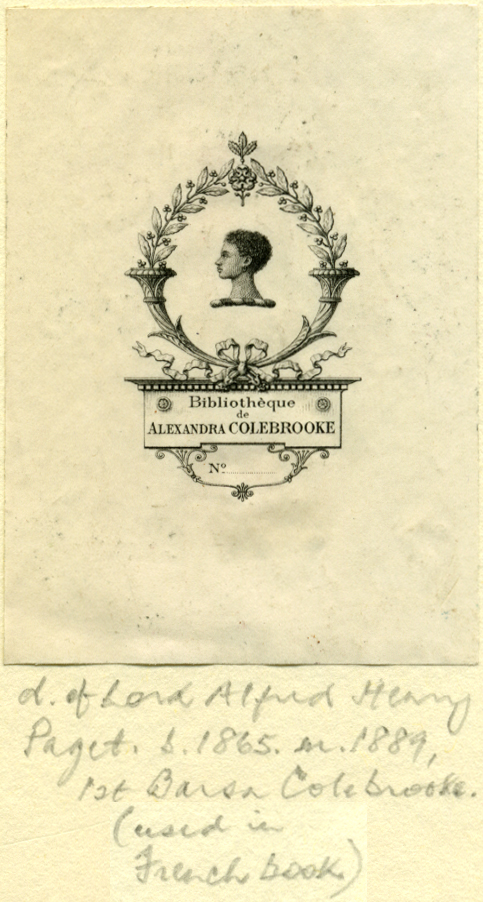 Bibliothèque
de
ALEXANDRA COLEBROOKE
Nº
d. of Lord Alfred Henry
Paget. b. 1865. m. 1889,
1st Barsn Colebrooke.
(used in
French book)